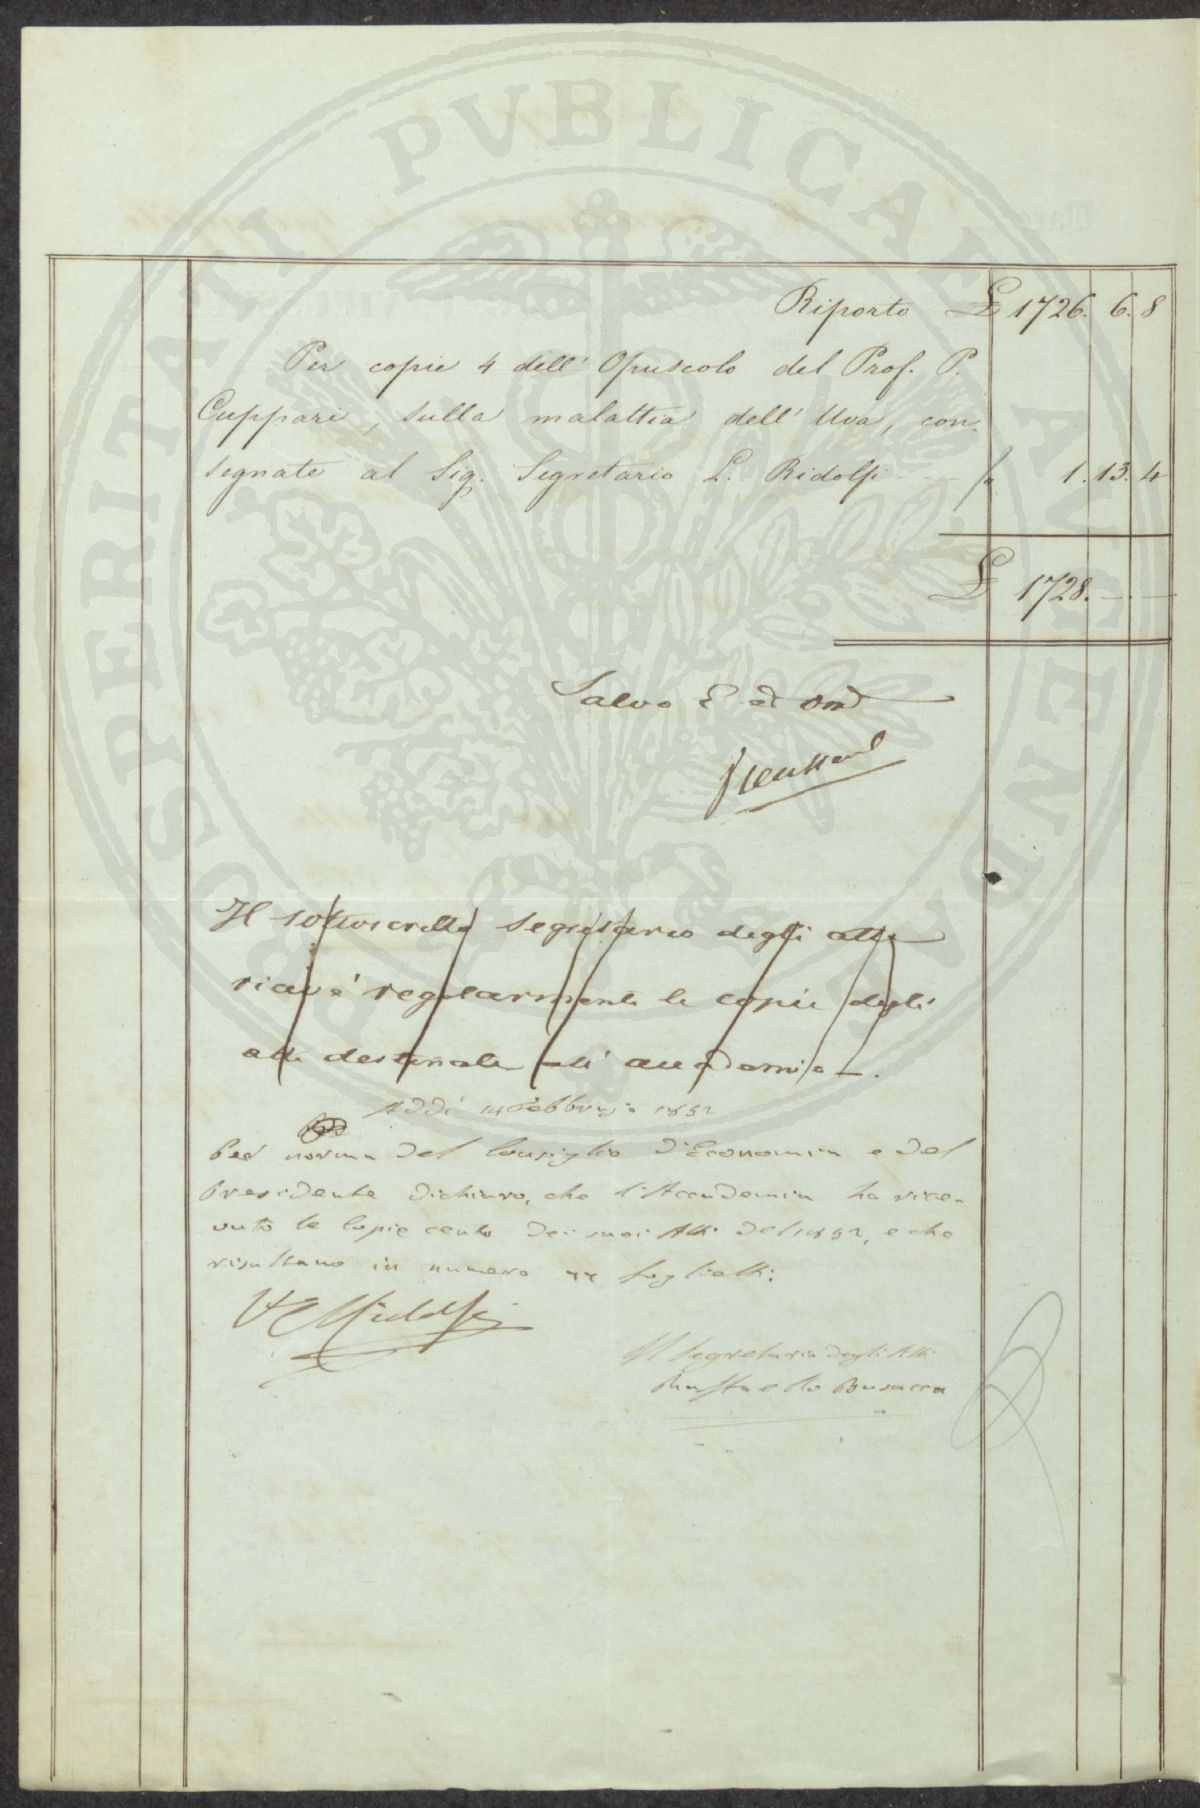 PROSPERITATI PVBLICAE AVGENDAE
Riporto £ 1726. 6. 8
Per copie 4 dell' Opuscolo del Prof. P.
Cuppari, sulla malattia dell' Uva, con-
segnate al Sig. Segretario L. Ridolfi 1. 13. 4
£ 1728. — —
Salvo E. ed Om
Il sottoscritto segretario degli atti
ricevé regolarmente le copie degli
atti destinate all' accademia.
Addì 14 Febbrajo 1852
Per norma del Consiglio d'Economia e del
Presidente dichiaro, che l'Accademia ha rice-
vuto le copie cento dei suoi Atti del 1852, e che
risultano in numero foglietti:
Ridolfi
Il Segretario degli Atti
Raffaello Busacca